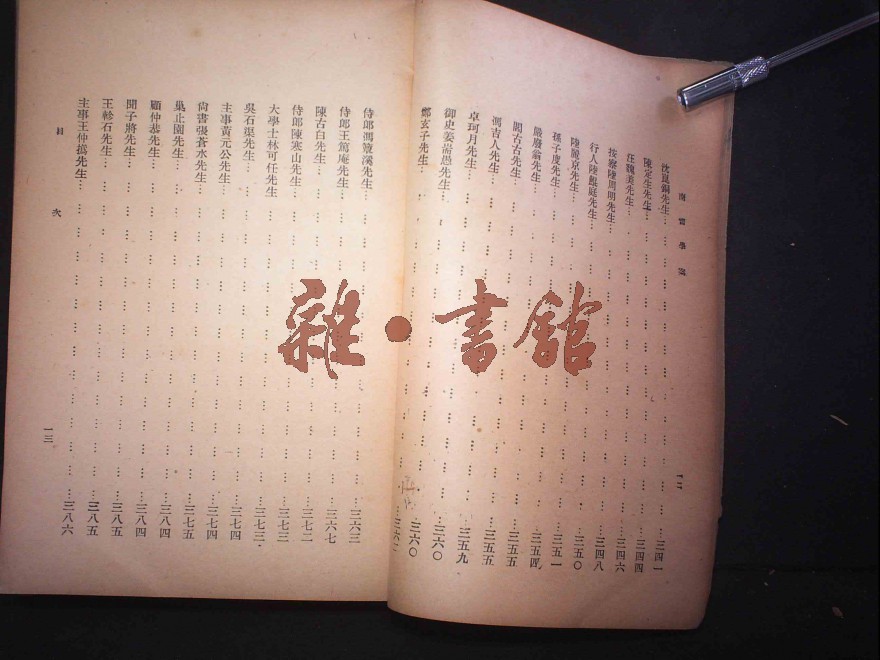 南雷學案
沈崑銅先生……三四一
陳定生先生……三四四
汪魏美先生……三四六
按察陸周明先生……三四八
行人陸鯤庭先生……三五〇
陸麗京先生……三五一
孫子度先生……三五四
嚴廢翁先生……三五五
閻古古先生……三五五
馮吉人先生……三五九
卓珂月先生……三六〇
御史姜耑愚先生……三六〇
鄭玄子先生……三六二
侍郎馮簟溪先生……三六三
侍郎王篤庵先生……三六七
陳古白先生……三七二
侍郎陳寒山先生……三七三
大學士林可任先生……三七三
吳石渠先生……三七四
主事黃元公先生……三七四
尙書張蒼水先生……三七五
巢止園先生……三八四
顧仲恭先生……三八四
聞子將先生……三八五
王軫石先生……三八五
主事王仲撝先生……三八六
目次
一三
雜·書館